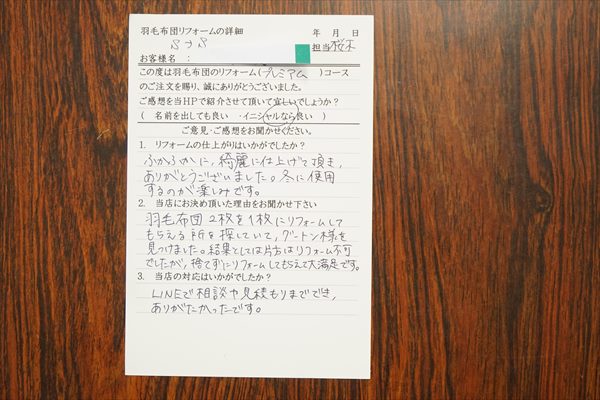 羽毛布団リフォームの詳細 年 月 日
担当 桜木
お客様名：
この度は羽毛布団のリフォーム(プレミアム)コース
のご注文を賜り、誠にありがとうございました。
ご感想を当HPで紹介させて頂いて宜しいでしょうか？
( 名前を出しても良い ・イニシャルなら良い )
ご意見・ご感想をお聞かせください。
1. リフォームの仕上がりはいかがでしたか？
ふかふかに、綺麗に仕上げて頂き、
ありがとうございました。冬に使用
するのが楽しみです。
2. 当店にお決め頂いた理由をお聞かせ下さい
羽毛布団2枚を1枚にリフォームして
もらえる所を探していて、グートン様を
見つけました。結果としては片方はリフォーム不可
でしたが、捨てずにリフォームしてもらえて大満足です。
3. 当店の対応はいかがでしたか？
LINEで相談や見積もりまででき, 
ありがたかったです。